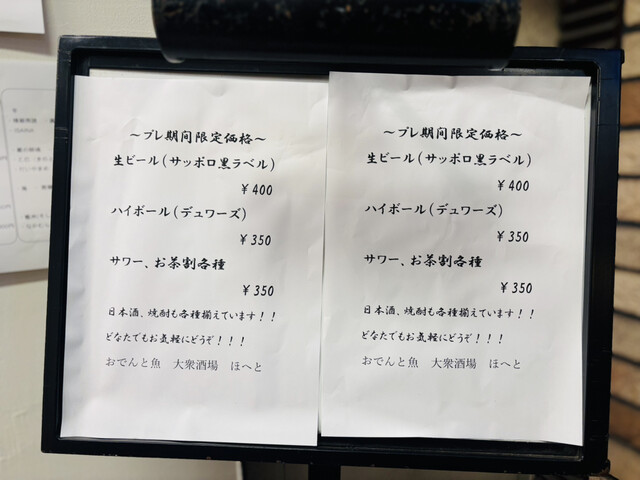 ～プレ期間限定価格～
生ビール(サッポロ黒ラベル)
￥400
ハイボール(デュワーズ)
￥350
サワー、お茶割各種
￥350
日本酒、焼酎も各種揃えています！！
どなたでもお気軽にどうぞ！！！
おでんと魚　大衆酒場　ほへと
～プレ期間限定価格～
生ビール(サッポロ黒ラベル)
￥400
ハイボール(デュワーズ)
￥350
サワー、お茶割各種
￥350
日本酒、焼酎も各種揃えています！！
どなたでもお気軽にどうぞ！！！
おでんと魚　大衆酒場　ほへと